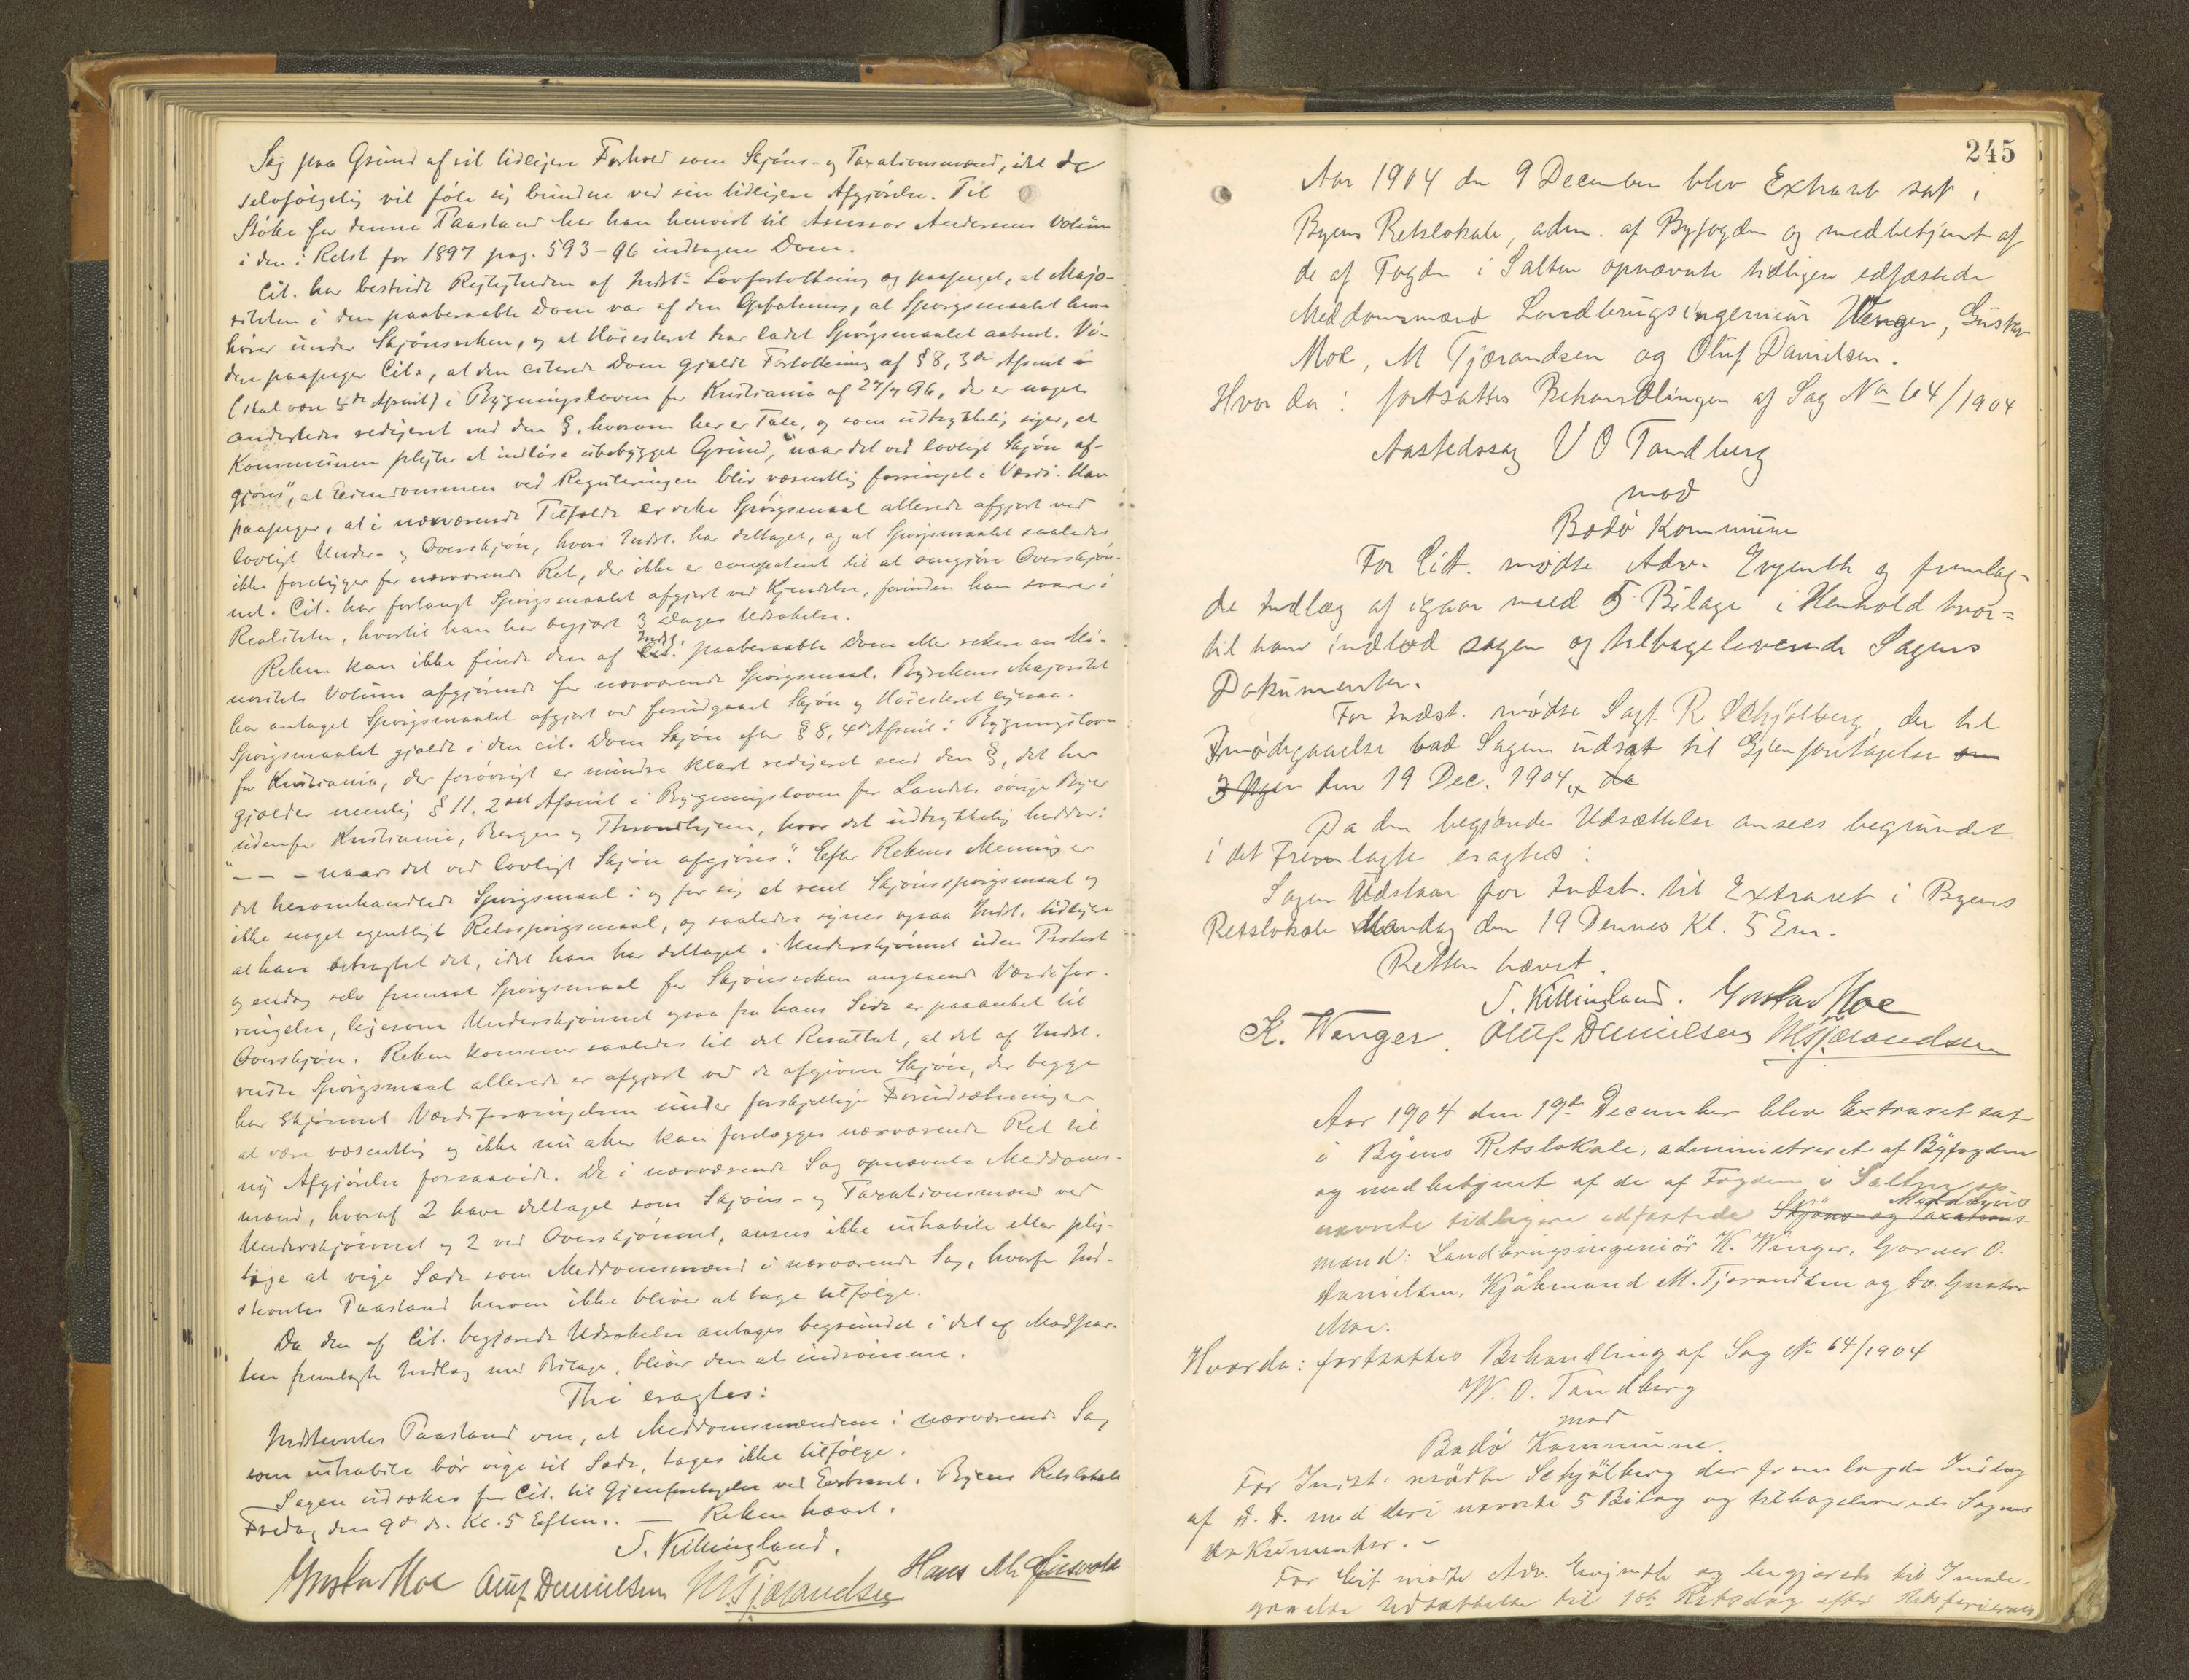 Sag paa Grund af sit tidligere Forhold som Skjöns- og Taxationsmænd, idet de
selvfölgelig vil föle sig bundne ved sin tidligere Afgjörelse. Til
Stötte for denne Paastand har han henvist til Assessor Andersens Votum
i den i Retst for 1897 pag. 593-96 indtagne Dom.
Cit. har bestridt Rigtigheden af Indst.s Lovfortolkning og paapeget, at Majo-
riteten i den paaberaabte Dom var af den Opfatning, at Spörgsmaalet hen-
hörer under Skjönsretten, og at Höiesteret har ladet Spörgsmaalet aabent. Vi-
dere paapeger Cit., at den citerede Dom gjældt Fortolkning af § 8, 3die Afsnit i
(skal være 4de Afsnit) i Bygningsloven for Kristiania af 27/7 96, der er noget
anderledes redigeret end den §, hvorom her er Tale, og som udtrykkelig siger, at
Kommunen pligter at indlöse ubebygget Grund, "naar det ved lovligt Skjön af-
gjöres", at Eiendommen ved Reguleringen blir væsentlig forringet i Værdi. Han
paapeger, at i nærværende Tilfælde er dette Spörgsmaal allerede afgjort ved
lovligt Under- og Overskjön, hvori Indst. har deltaget, og at Spörgsmaalet saaledes
ikke foreligger for nærværende Ret, der ikke er competent til at omgjöre Overskjön-
net. Cit. har forlangt Spörgsmaalet afgjort ved Kjendelse, forinden han svarer i
Realiteten, hvortil han har begjært 3 Dages Udsættelse.
Retten kan ikke finde den af Indst. paaberaabte Dom eller rettere en Mi-
noritets Votum afgjörende for nærværende Spörgsmaal. Byrettens Majoritet
har antaget Spörgsmaalet afgjort ved forudgaaet Skjön og Höiesteret ligesaa.
Spörgsmaalet gjældt i den cit. Dom Skjön efter § 8, 4de Afsnit i Bygningsloven
for Kristiania, der forövrigt er mindre klart redigeret end den §, det her
gjælder nemlig § 11, 2det Afsnit i Bygningsloven for Landets övrige Byer
udenfor Kristiania, Bergen og Throndhjem, hvor det udtrykkelig hedder:
"- - - naar det ved lovligt Skjön afgjöres". Efter Rettens Mening er
det heromhandlede Spörgsmaal i og for sig et rent Skjönsspörgsmaal og
ikke noget egentligt Retsspörgsmaal, og saaledes synes ogsaa Indst. tidligere
at have betragtet det, idet han har deltaget i Underskjönnet uden Protest
og endog selv fremsat Spörgsmaal for Skjönsretten angaaende Værdifor-
ringelse, ligesom Underskjönnet ogsaa fra hans Side er paaanket til
Overskjön. Retten kommer saaledes til det Resultat, at det af Indst.
reiste Spörgsmaal allerede er afgjort ved de afgivne Skjön, der begge
har skjönnet Værdiforringelsen under forskjellige Forudsætninger
at være væsentlig og ikke nu atter kan forelægges nærværende Ret til
ny Afgjörelse forsaavidt. De i nærværende Sag opnævnte Meddoms-
mænd, hvoraf 2 have deltaget som Skjöns- og Taxationsmænd ved
Underskjönnet og 2 ved Overskjönnet, ansees ikke inhabile eller plig-
tige at vige Sæde som Meddomsmænd i nærværende Sag, hvorfor Ind-
stevntes Paastand herom ikke bliver at tage tilfölge.
Da den af Cit. begjærede Udsættelse antages begrundet i det af Modpar-
ten fremlagte Indlæg med Bilage, bliver den at indrömme.
Thi eragtes:
Indstevntes Paastand om, at Meddomsmændene i nærværende Sag
som inhabile bör vige sit Sæde, tages ikke tilfölge.
Sagen udsættes for Cit. til Gjenforetagelse ved Extraret i Byens Retslokale
Fredag den 9de ds. Kl. 5 Efterm. — Retten hævet.
S. Killingland.
Gustav Moe Oluf Danielsen M Tjærandsen Hans M.
245
Aar 1904 den 9 December blev Extraret sat i
Byens Retslokale, adm. af Byfogden og medbetjent af
de af Fogden i Salten opnævnte tidligere edfæstede
Meddomsmænd Landbrugsingeniør Wenger, Gustav
Moe, M Tjærandsen og Oluf Danielsen.
Hvor da: fortsattes Behandlingen af Sag No 64/1904
Aastedssag V O Tandberg
mod
Bodö Kommune
For Cit. mødte Adv. Evjenth og fremlag-
de Indlæg af igaar med 5 Bilage i Henhold hvor-
til han indlod sagen og tilbageleverede Sagens
Dokumenter.
For Indst. mødte Sagf. R Schjölberg, der til
Imødegaaelse bad Sagen udsat til Gjenforetagelse om
3 Uger den 19 Dec. 1904. da
Da den begjærede Udsættelse ansees begrundet
i det Fremlagte eragtes:
Sagen Udstaar for Indst. til Extraret i Byens
Retslokale Mandag den 19 Dennes Kl. 5 Em.
Retten hævet.
S. Killingland. Gustav Moe
K. Wenger. Oluf Danielsen M Tjærandsen
Aar 1904 den 19de December blev Extraret sat
i Byens Retslokale, administreret af Byfogden
og medbetjent af de af Fogden i Salten op-
nævnte tidligere edfæstede Skjöns- og Taxations- Meddoms
mænd: Landbrugsingeniör K. Winger, Garver O.
Danielsen, Kjöbmand M. Tjærandsen og do. Gustav
Moe.
Hvorda: fortsattes Behandling af Sag No 64/1904
W. O. Tandberg
mod
Bodö Kommune.
For Indst. mödte Schjölberg der fremlagde Indlæg
af d. D. med deri nævnte 5 Bilag og tilbageleverede Sagens
Dokumenter. -
For Cit mødte Adv. Evjenth og begjærede til Imøde-
gaaelse Udsættelse til 1ste Retsdag efter Retsferierne